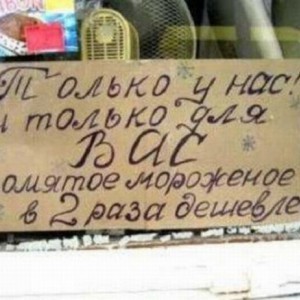 Только у нас!
и только для
ВАС
омятое мороженое
в 2 раза дешевле